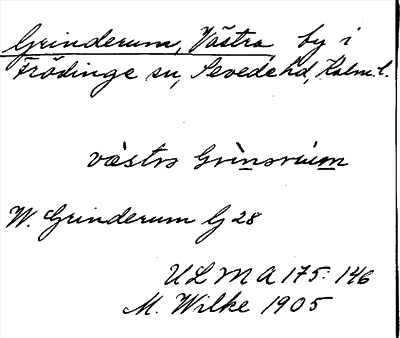 Grinderum, Västra, by i
Frödinge sn, Sevede hd, Kalm. l.
W. Grinderum Gj 28
ULMA 175: 146
M. Wilke 1905